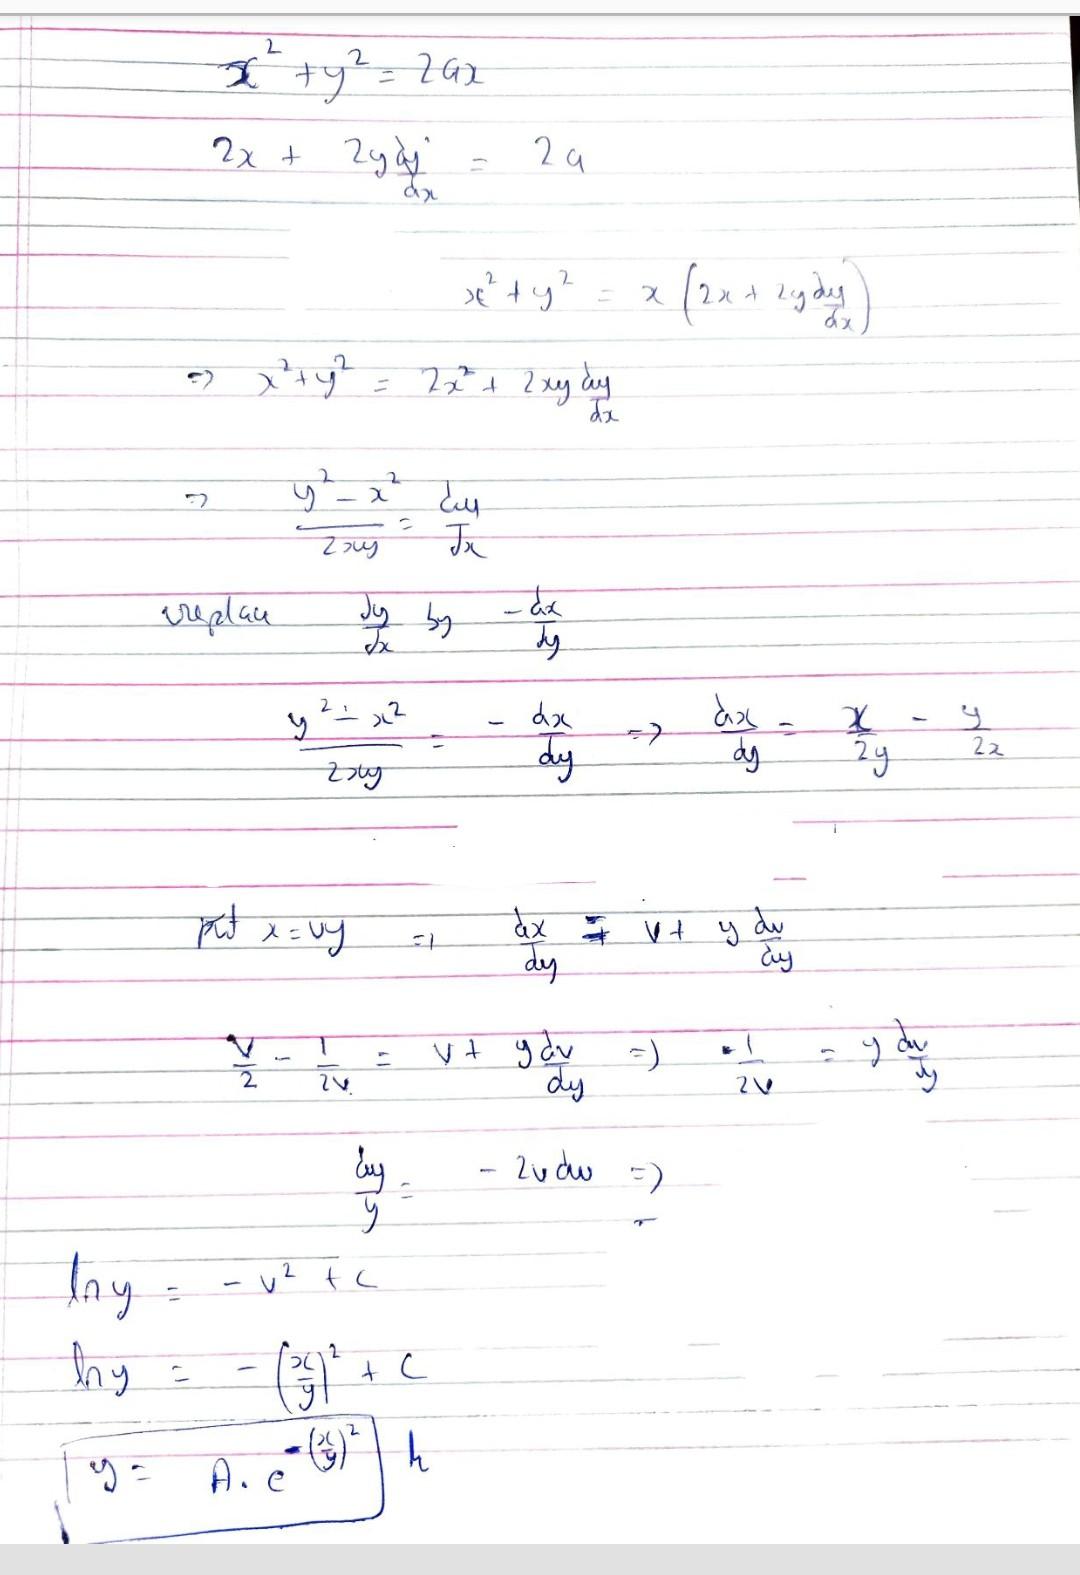 x² + y² = 2ax
2x + 2y dy/dx = 2a
x² + y² = x (2x + 2y dy/dx)
=> x² + y² = 2x² + 2xy dy/dx
=> (y² - x²)/2xy = dy/dx
replace dy/dx by - dx/dy
(y² - x²)/2xy = - dx/dy => dx/dy = x/2y - y/2x
put x = vy => dx/dy = v + y dv/dy
v/2 - 1/2v = v + y dv/dy => -1/2v = y dv/dy
dy/y = - 2v dv =>
ln y = - v² + c
ln y = - (x/y)² + c
y = A. e^-(x/y)²